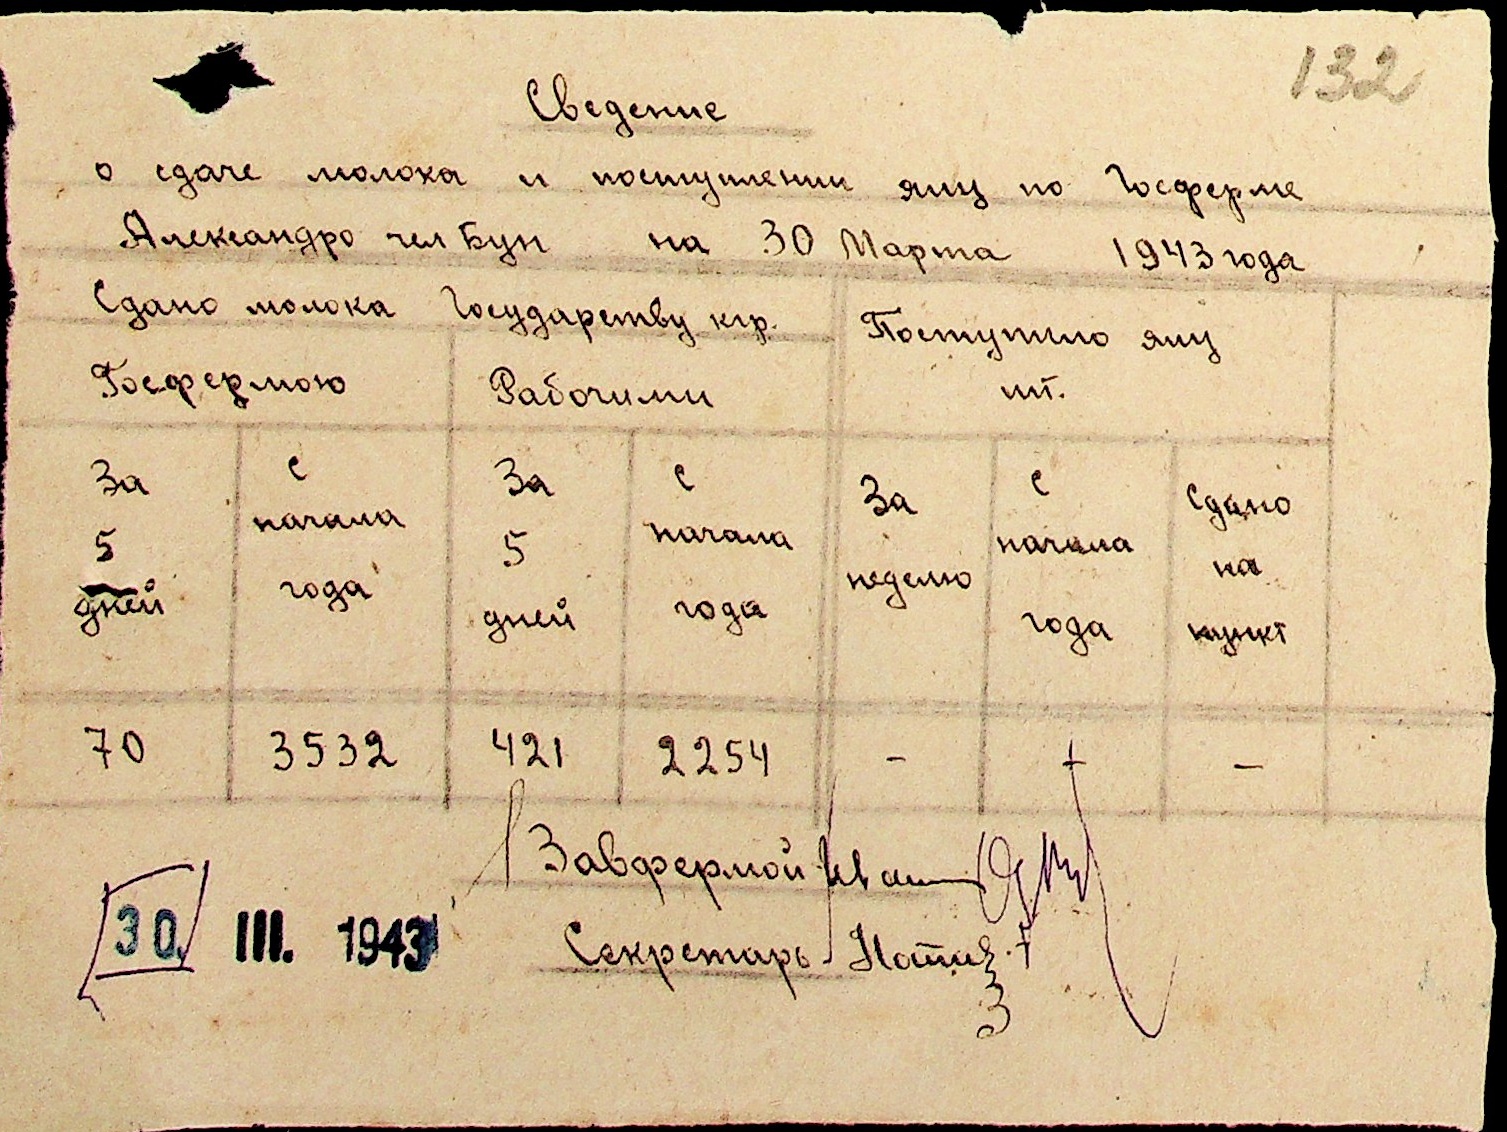 132
Сведение
о сдаче молока и поступлении яиц по Госферме
Александро чел Бун на 30 Марта 1943 года
Сдано молока Государству кгр. Поступило яиц
Госфермою Рабочими шт.
За 5 дней С начала года За 5 дней С начала года За неделю С начала года Сдано на пункт
70 3532 421 2254 - + -
Завфермой
30. III. 1943
Секретарь